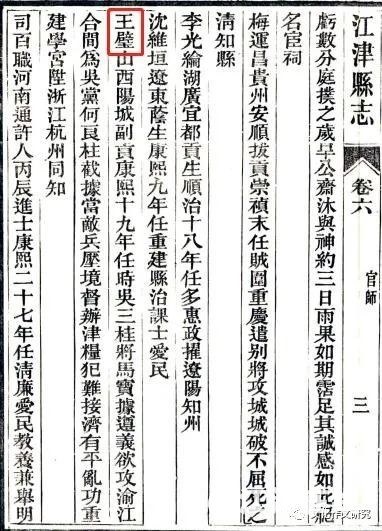 江津縣志
卷六
官師
三
虧數分庭撲之歲旱公齋沐與神約三日雨果如期霑足其誠感如此
名宦祠
梅運昌貴州安順拔貢崇禎末任賊圍重慶遣别將攻城城破不屈死之
清知縣
李光綸湖廣宜都貢生順治十八年任多惠政擢遼陽知州
沈維垣遼東蔭生康熙九年任重建縣治課士愛民
王璧山西陽城副貢康熙十九年任時吳三桂將馬寶據遵義欲攻渝江
合間爲吳黨何良柱截據當敵兵壓境督辦津糧犯難接濟有平亂功重
建學宮陞浙江杭州同知
司百職河南通許人丙辰進士康熙二十七年任清廉愛民教養兼舉明